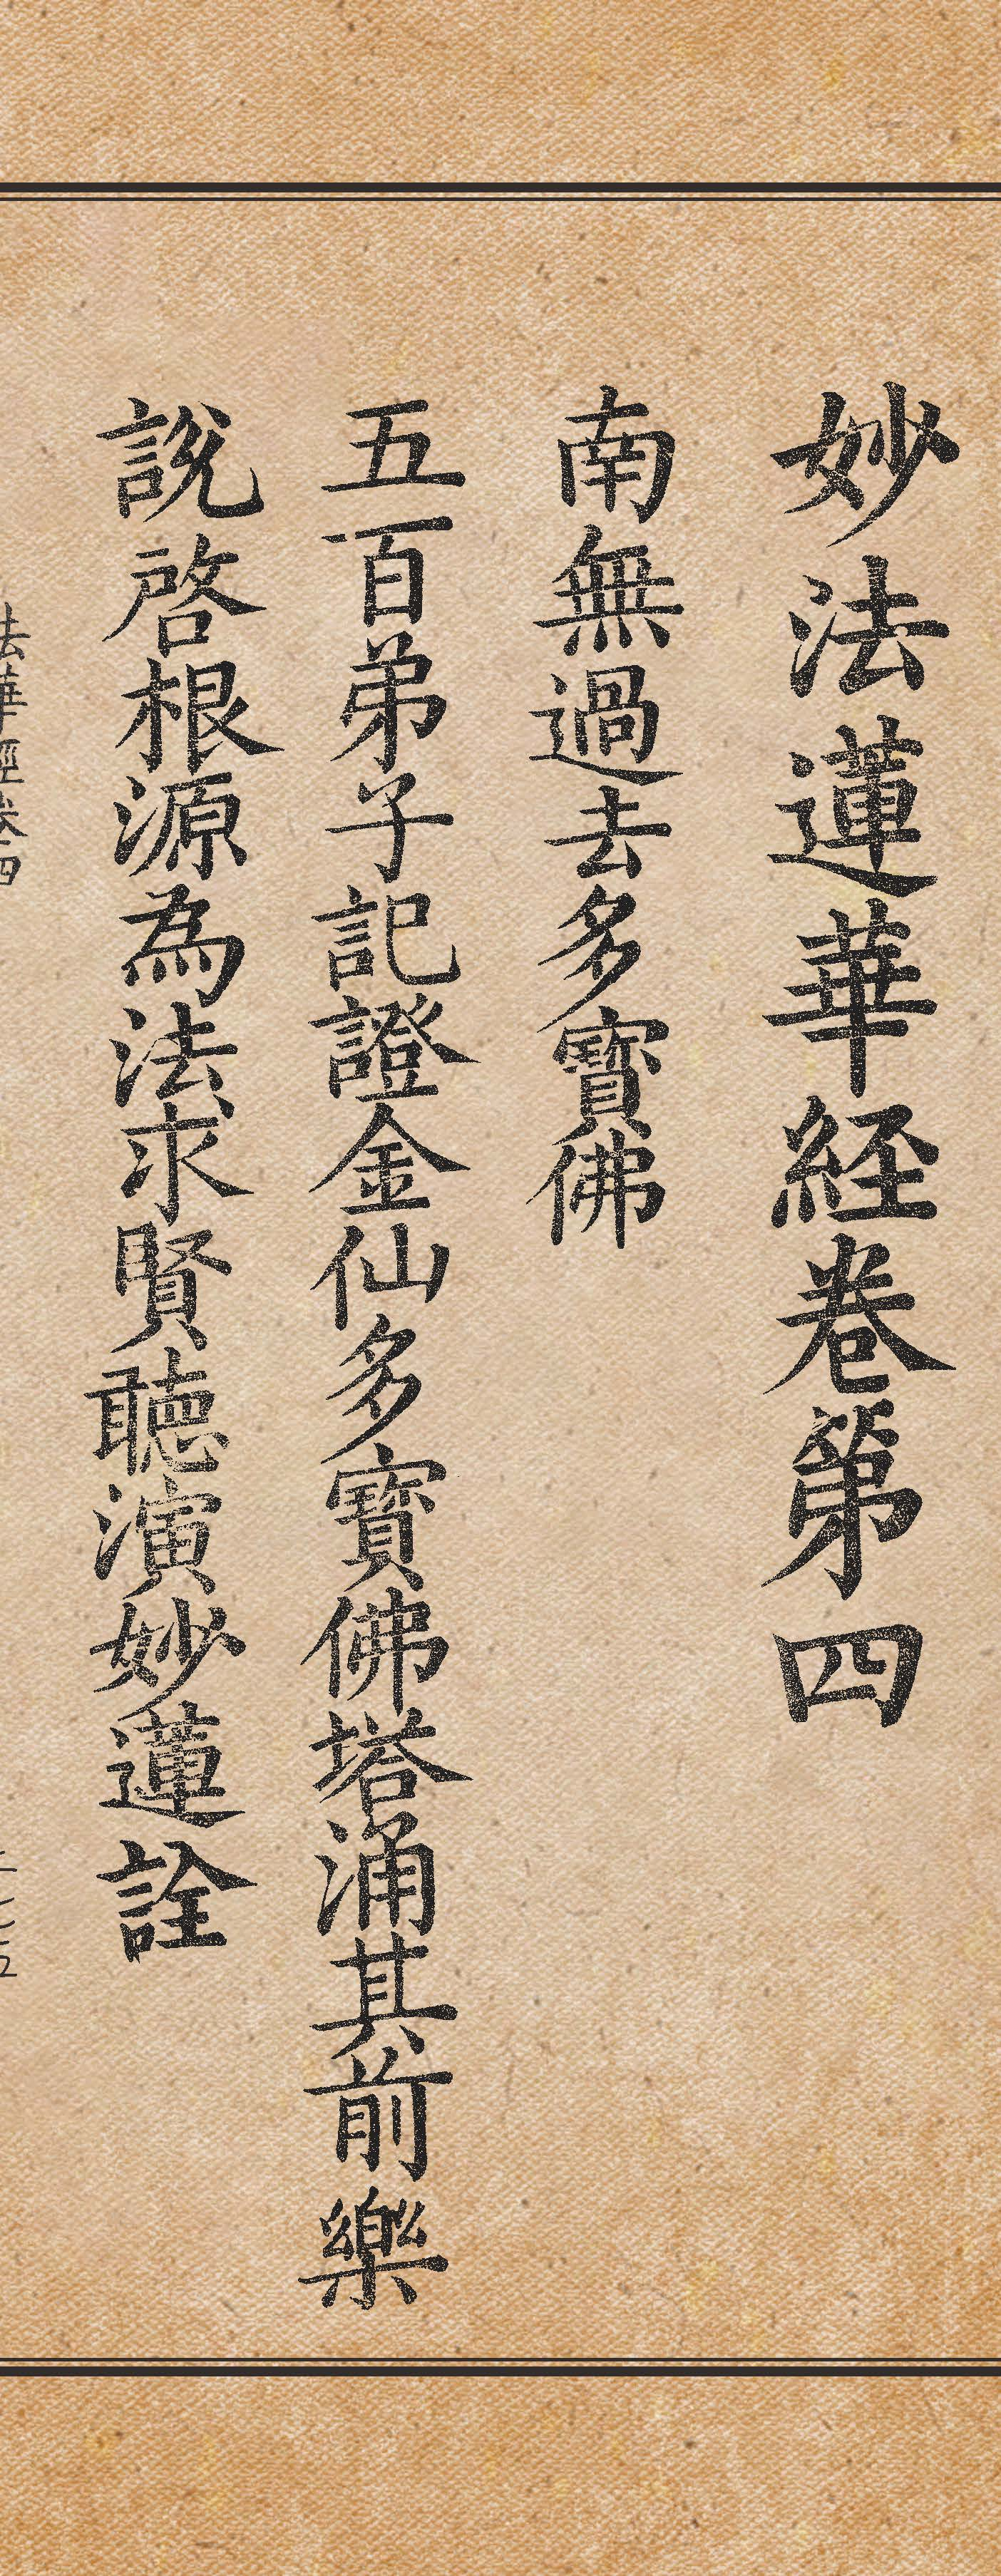 妙法蓮華経卷第四
南無過去多寶佛
五百弟子記證金仙多寶佛塔涌其前樂
說啓根源為法求賢聽演妙蓮詮
法華經卷四